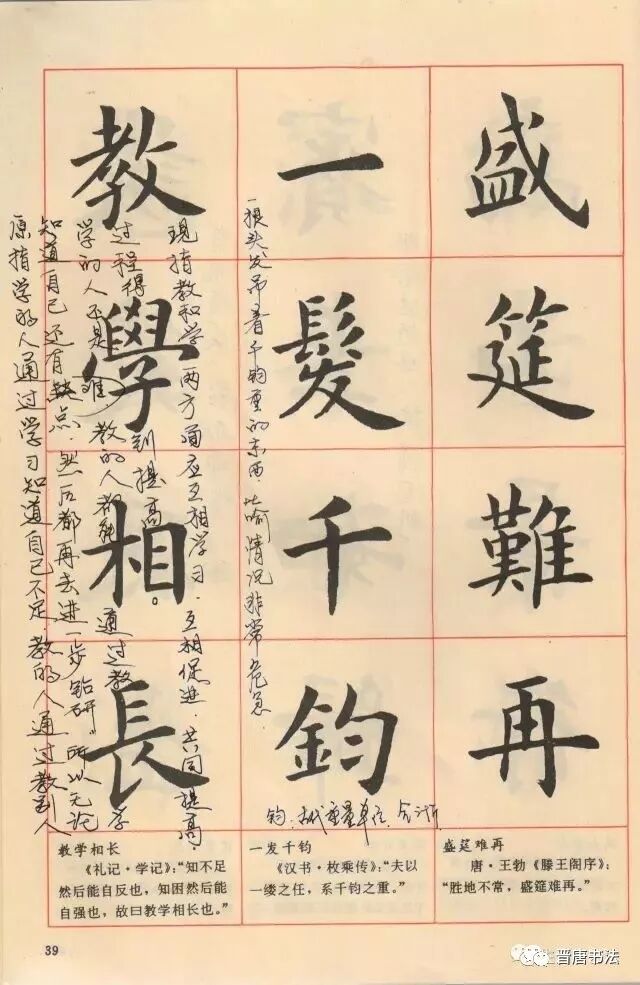 盛筵難再
一髮千鈞
教學相長
一根头发吊着千钧重的东西,比喻情况非常危急.
钧:古代重量单位.合
原指学的人通过学习知道自己不足.教的人通过教别人
知道自己还有缺点.然后都再去进一步钻研。所以无论
学的人还是教的人都能通过教学
过程得到提高。
现指教和学两方面应互相学习.互相促进.共同提高.
盛筵难再
唐·王勃《滕王阁序》:
“胜地不常,盛筵难再。”
一发千钧
《汉书·枚乘传》:“夫以
一缕之任,系千钧之重。”
教学相长
《礼记·学记》:“知不足
然后能自反也,知困然后能
自强也,故曰教学相长也。”
39
晋唐书法